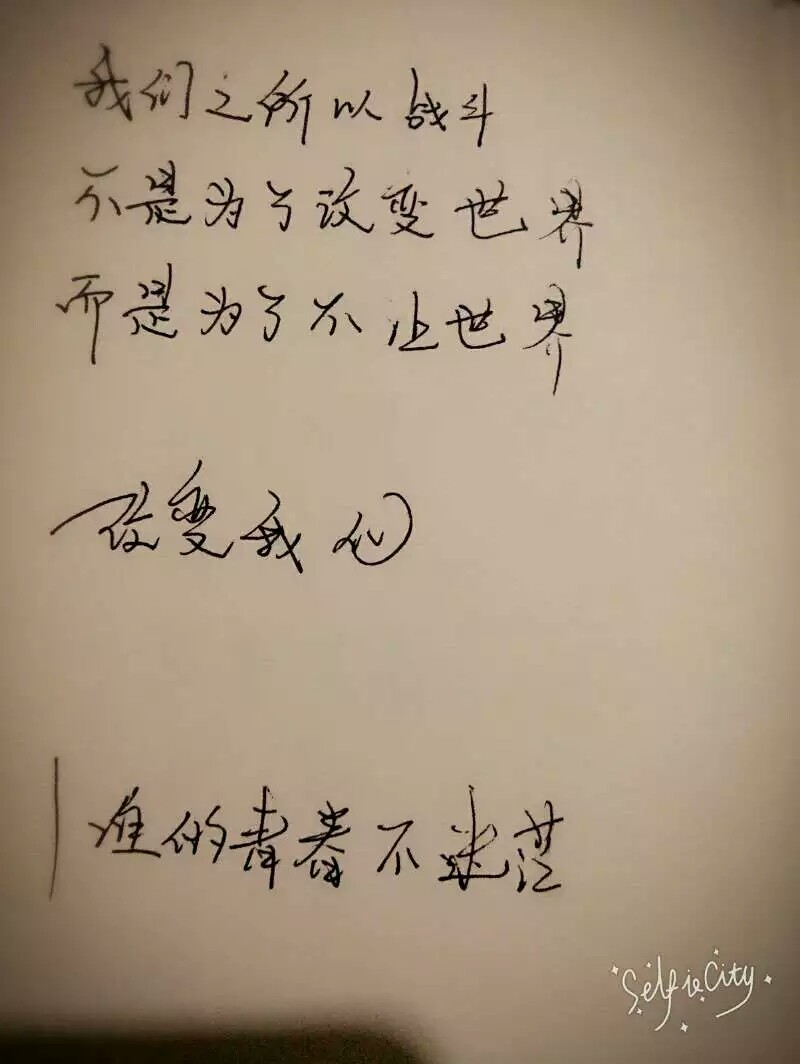 我们之所以战斗
不是为了改变世界
而是为了不让世界
改变我们
谁的青春不迷茫
SelfieCity